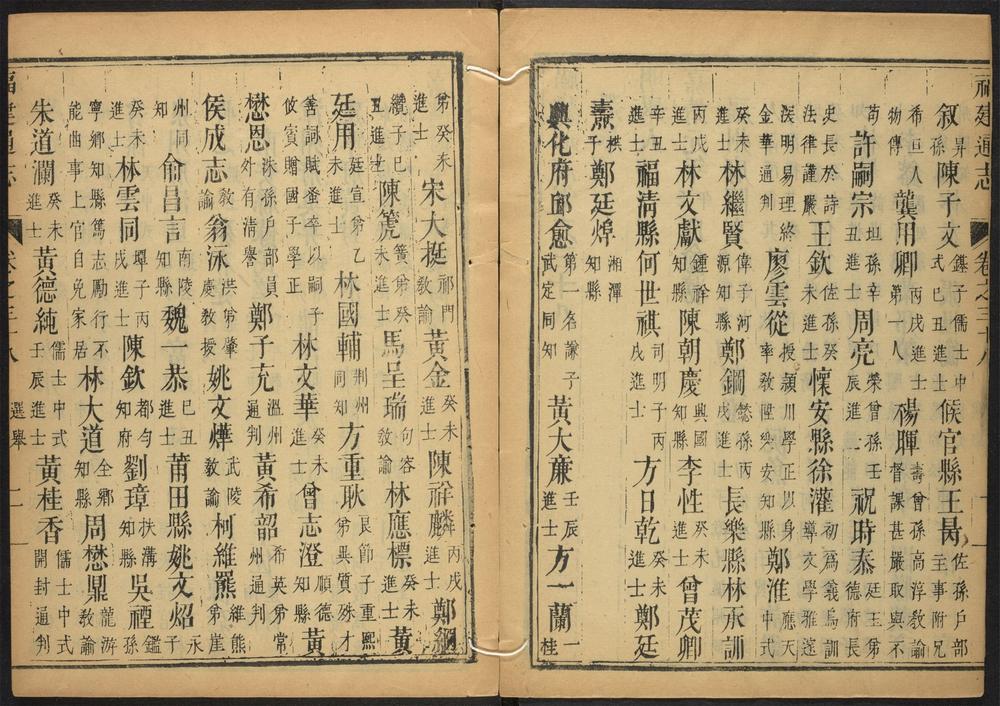 福建通志 卷之三十八 一
叙昇孫陳子文鏸子儒士中式己丑進士候官縣王昺佐孫戶部主事附兄
希旦人物傳龔用卿丙戌進士第一人楊暐壽曾孫高淳教諭督課甚嚴取與不
苟許嗣宗坦孫辛丑進士周亮榮曾孫壬辰進士祝時泰廷玉弟德府長
史長於詩法律謹嚴王欽佐孫癸未進士懷安縣徐灌初爲義烏訓導文學雅遂
深明易理終金華通判廖雲從授潁川學正以身率教陞樂安知縣鄭淮應天中式
癸未進士林繼賢偉子河源知縣鄭鋼懿孫丙戌進士長樂縣林丞訓
丙戌進士林文獻鍾祥知縣陳朝慶興國知縣李性癸未進士曾茂卿
辛丑進士福清縣何世祺司明子丙戌進士方日乾癸未進士鄭廷
燾棋子鄭廷焯湘潭知縣
興化府邱愈第一名諫子武定同知黃大廉壬辰進士方一蘭一桂
弟癸未進士宋大挺祁門教諭黃金癸未進士陳祥麟丙戌進士鄭綱
纘子己丑進士陳篪簧弟癸未進士馬呈瑞句容教諭林應標癸未進士黃
廷用廷宣弟乙未進士林國輔荊州同知方重耿良節子重熙弟異質殊才
善詞賦蚤卒以嗣子攸賓贈國子學正林文華癸未進士曾志澄順德知縣黃
懋恩洙孫戶部員外有清譽鄭子充溫州通判黃希韶希英弟常州通判
侯成志教諭翁泳洪弟肇慶教授姚文燁武陵教諭柯維羆維熊弟崖
州同知俞昌言南陵知縣魏一恭己丑進士莆田縣姚文炤永子
癸未進士林雲同墠子丙戌進士陳欽都勻知府劉璋扶溝知縣吳禋鑑孫
寧鄉知縣篤志勵行不能曲事上官自免家居林大道全鄉知縣周懋鼎龍游教諭
朱道瀾癸未進士黃德純儒士中式壬辰進士黃桂香儒士中式開封通判
福建通志 卷之三十八 選舉 一